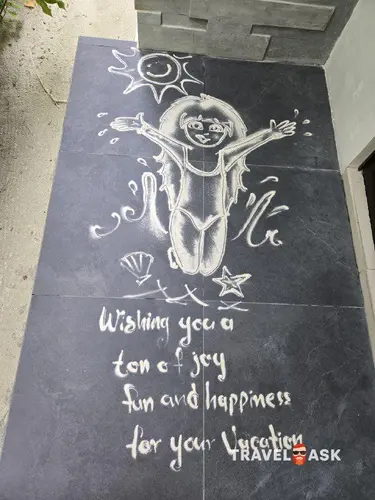 Wishing you a
ton of joy
fun and happiness
for your Vacation
TRAVEL ASK